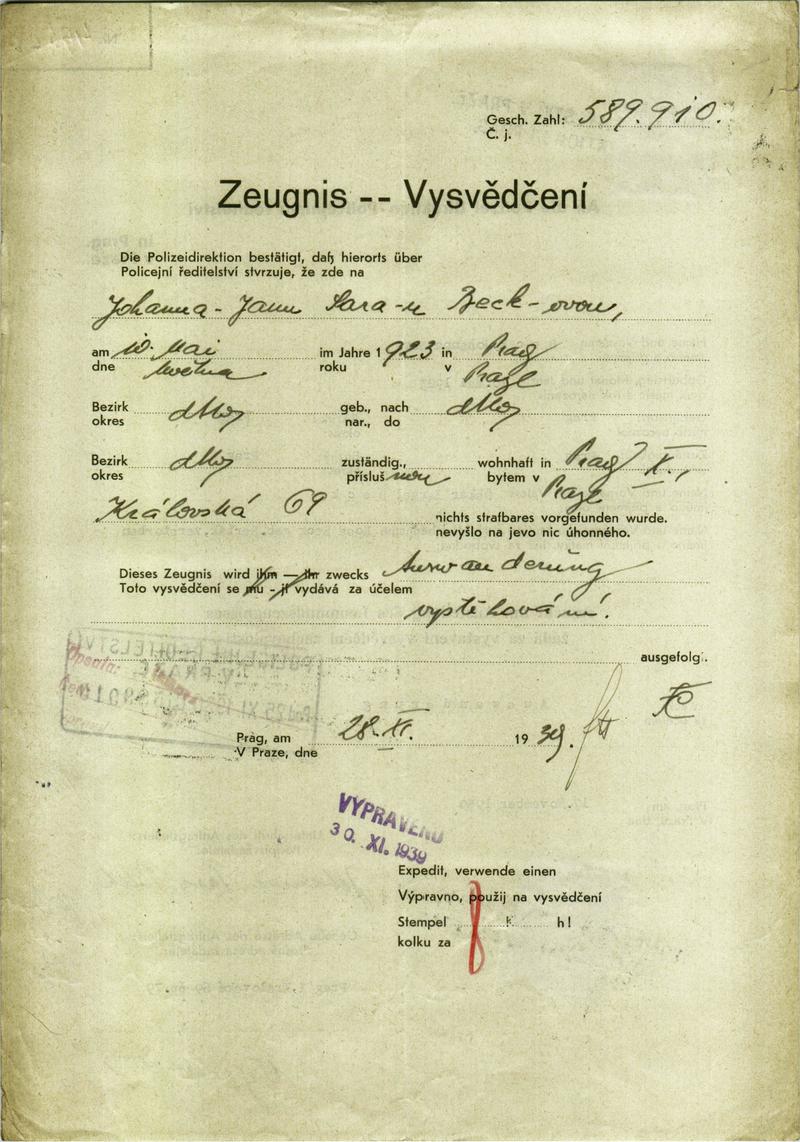 Gesch. Zahl: 589.910.
Č. j.
Zeugnis -- Vysvědčení
Die Polizeidirektion bestätigt, daß hierorts über
Policejní ředitelství stvrzuje, že zde na
Johanna - Janu Sara-u Beck - ovou,
am 10. Mai im Jahre 1923 in Prag
dne května roku v Praze
Bezirk dtto geb., nach dtto
okres nar., do
Bezirk dtto zuständig., wohnhaft in Prag X.,
okres přísluš nou bytem v Praze
Královská 69 nichts strafbares vorgefunden wurde.
nevyšlo na jevo nic úhonného.
Dieses Zeugnis wird ihm — ihr zwecks Auswanderung
Toto vysvědčení se mu - jí vydává za účelem
vystěhování.
ausgefolg.
Prag, am 28. XI. 1939.
V Praze, dne
VYPRAVENO
30. XI. 1939
Expedit, verwende einen
Výpravno, použij na vysvědčení
Stempel 8 k h!
kolku za